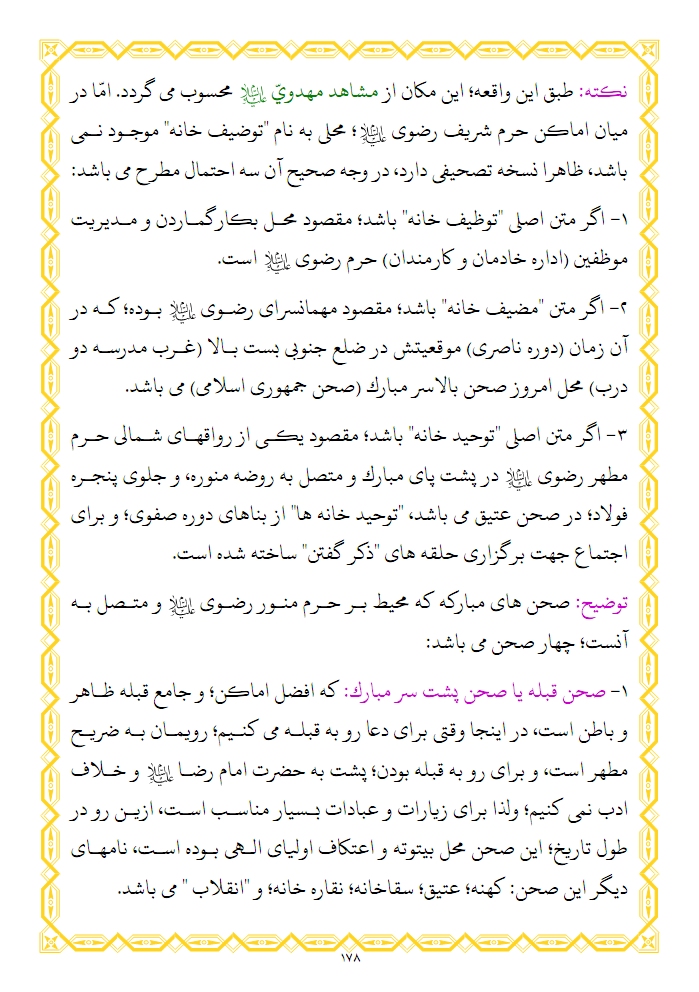 نکته: طبق این واقعه؛ این مکان از مشاهد مهدویّ علیه‌السلام محسوب می گردد. امّا در
میان اماکن حرم شریف رضوی علیه‌السلام؛ محلی به نام "توضیف خانه" موجود نمی
باشد، ظاهرا نسخه تصحیفی دارد، در وجه صحیح آن سه احتمال مطرح می باشد:
۱- اگر متن اصلی "توظیف خانه" باشد؛ مقصود محل بکارگماردن و مدیریت
موظفین (اداره خادمان و کارمندان) حرم رضوی علیه‌السلام است.
۲- اگر متن "مضیف خانه" باشد؛ مقصود مهمانسرای رضوی علیه‌السلام بوده؛ که در
آن زمان (دوره ناصری) موقعیتش در ضلع جنوبی بست بالا (غرب مدرسه دو
درب) محل امروز صحن بالاسر مبارك (صحن جمهوری اسلامی) می باشد.
۳- اگر متن اصلی "توحید خانه" باشد؛ مقصود یکی از رواقهای شمالی حرم
مطهر رضوی علیه‌السلام در پشت پای مبارك و متصل به روضه منوره، و جلوی پنجره
فولاد؛ در صحن عتیق می باشد، "توحید خانه ها" از بناهای دوره صفوی؛ و برای
اجتماع جهت برگزاری حلقه های "ذکر گفتن" ساخته شده است.
توضیح: صحن های مبارکه که محیط بر حرم منور رضوی علیه‌السلام و متصل به
آنست؛ چهار صحن می باشد:
۱- صحن قبله یا صحن پشت سر مبارك: که افضل اماکن؛ و جامع قبله ظاهر
و باطن است، در اینجا وقتی برای دعا رو به قبله می کنیم؛ رویمان به ضریح
مطهر است، و برای رو به قبله بودن؛ پشت به حضرت امام رضا علیه‌السلام و خلاف
ادب نمی کنیم؛ ولذا برای زیارات و عبادات بسیار مناسب است، ازین رو در
طول تاریخ؛ این صحن محل بیتوته و اعتکاف اولیای الهی بوده است، نامهای
دیگر این صحن: کهنه؛ عتیق؛ سقاخانه؛ نقاره خانه؛ و "انقلاب " می باشد.
۱۷۸